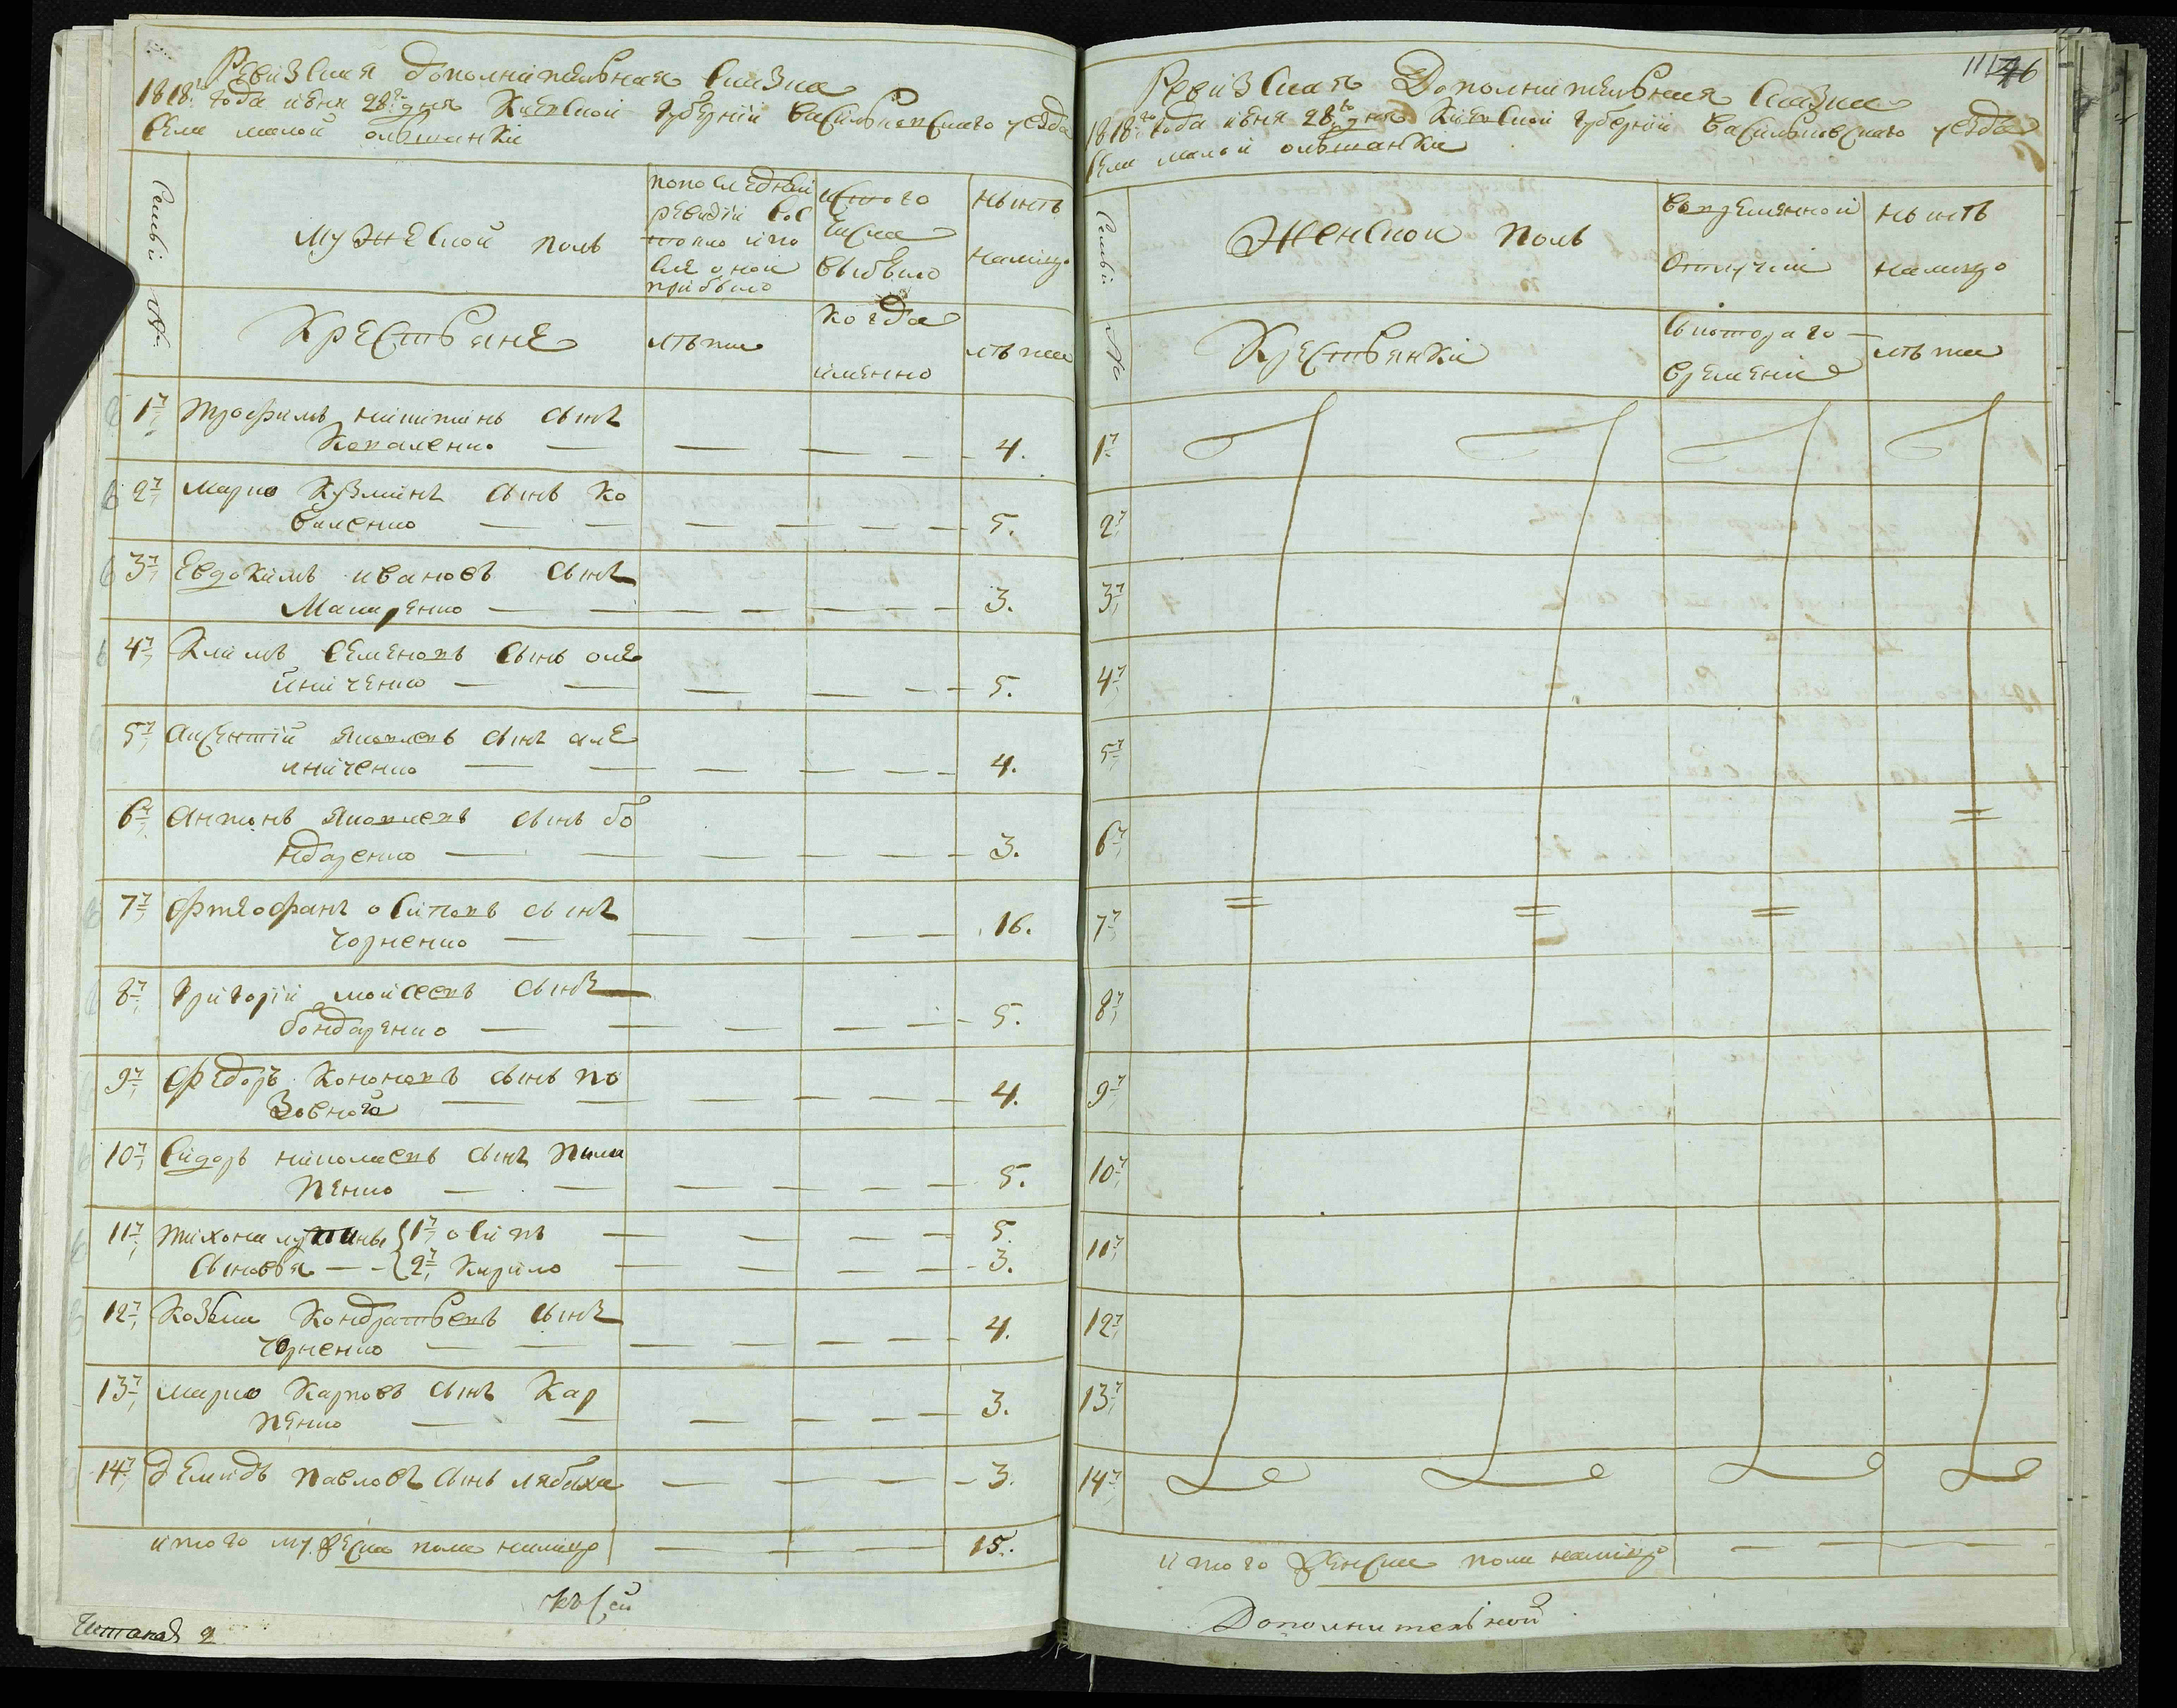 Ревизская дополнительная сказка
1818го года июня 28го дня Киевской губернии васильковскаго уезда
села малой ольшанки
Семьи
мужеской полъ
попоследней
ревизии сос
тояло и по
сле оной
прибыло
исъ того
числа
выбыло
нынѣ
налицо
№
Крестьяне
лѣта
когда
именно
лѣта
1. трофимъ никитинъ сынъ
Коваленко — — — — 4.
2. марко Кузминъ сынъ ко
валенко — — — — — 5.
3. Евдокимъ ивановъ сынъ
Макаренко — — — — 3.
4. Климъ Семеновъ сынъ оле
йниченко — — — — 5.
5. авксентий яковлевъ сынъ оле
йниченко — — — — 4.
6. антонъ яковлевъ сынъ бо
ндаренко — — — — 3.
7. фтеофанъ осиповъ сынъ
чорненко — — — — 16.
8. григорий мойсеевъ сынъ
бондаренко — — — — 5.
9. федоръ Кононовъ сынъ по
зовной — — — — 4.
10. Сидоръ николаевъ сынъ пили
пенко — — — — 5.
11. тихона лукины {1. осипъ — — — 5.
сыновья — {2. Кирило — — — 3.
12. Козьма Кондратьевъ сынъ
чорненко — — — — 4.
13. марко Карповъ сынъ Кар
пенко — — — — 3.
14. демидъ павловъ сынъ лябаха — — — 3.
итого мужеска пола налицо — — — 15.
къ сей
1117
46
Ревизская Дополнительная сказка
1818го года июня 28го дня Киевской губернии васильковскаго уезда
села малой ольшанки
Семьи
Женской полъ
вовременной
отлучки
нынѣ
налицо
№
Крестьянки
съкотораго
времени
лѣта
1.
2.
3.
4.
5.
6.
7.
8.
9.
10.
11.
12.
13.
14.
итого женска пола налицо — — — —
Дополнительной